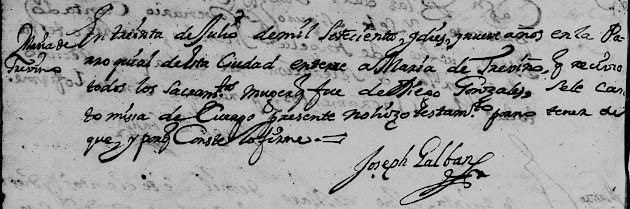 Maria de
Treviño
En treinta de Julio de mil setecientos, y dies, y nueve años en la Pa
rroquial de esta Ciudad enterre a Maria de Treviño, q recivio
todos los Sacram.tos muger q fue de Diego Gonzales, se le can
to misa de Cuerpo presente no hizo testam.to por no tener de
que, y p.a q Conste lo firme
Joseph Galban